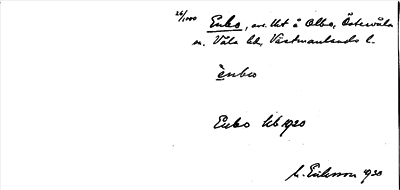 26/1000 Enbo, av. Ut å Olbo, Östervåla
sn, Våla hd, Västmanlands l.
ènbo
Enbo kb 1920
M. Eriksson 1930